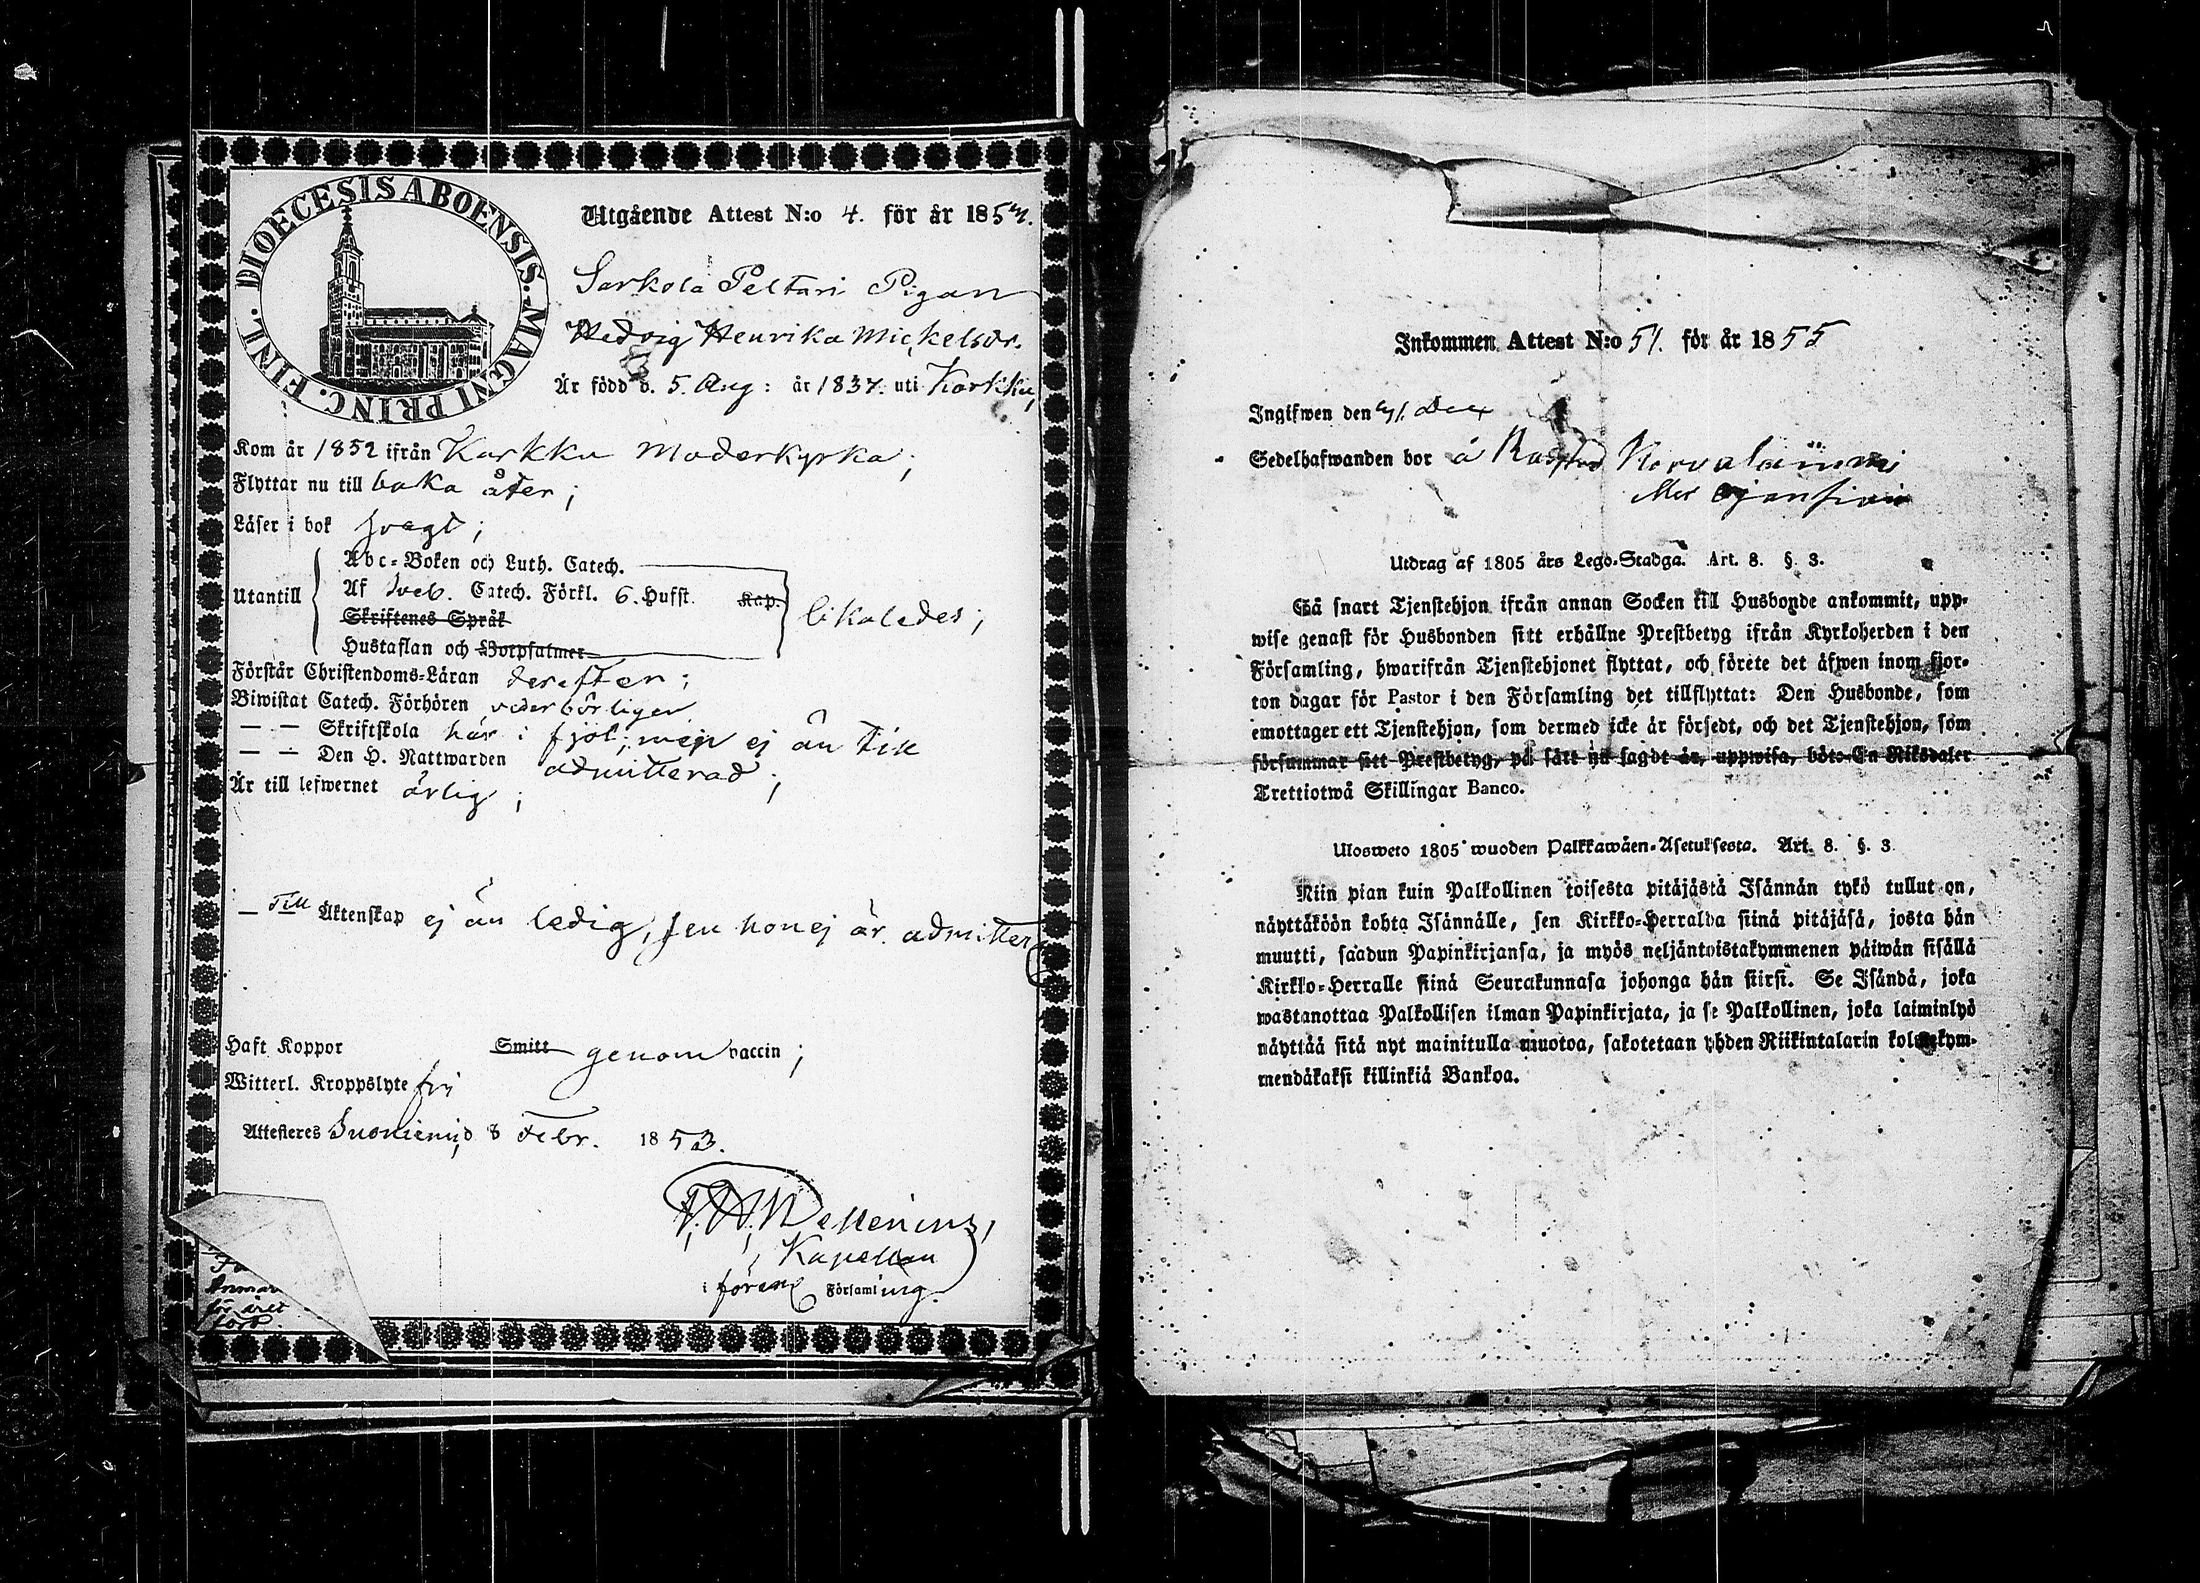 DIOECESIS ABOENSIS. MAGNI PRINC. FINL.
Utgående Attest N:o 4. för år 185
Sarkola Peltari Pigan
Hedvig Henrika Mickelsdr.
Är född d. 5. Aug: år 1837. uti Karkku,
Kom år 1852 ifrån Karkku Moderkyrka;
Flyttar nu till baka åter;
Läser i bok svagt;
Utantill
Abc-Boken och Luth. Catech.
Af Sveb. Catech. Förkl. 6. Hufst. Kap.
Skriftenes Språk
Hustaflan och Botpsalmer
likaledes;
Förstår Christendoms-Läran derefter;
Biwistat Catech. Förhören vederbörligen
— — Skriftskola här i fjol; men ej än till
— — Den H. Nattwarden admitterad;
Är till lefwernet ärlig;
— Till Äktenskap ej än ledig, sen hon ej är admitter
Haft Koppor Smitt genom vaccin;
Witterl. Kroppslyte fri
Attesteres Suoniemi, d 8 Febr. 1853.
Kapellan
i förena Församling.
för året
Inkommen Attest N:o 51. för år 1855
Ingifwen den Dec
Sedelhafwanden bor å
Utdrag af 1805 års Lego-Stadga. Art. 8. §. 3.
Så snart Tjenstehjon ifrån annan Socken till Husbonde ankommit, upp-
wise genast för Husbonden sitt erhållne Prestbetyg ifrån Kyrkoherden i den
Församling, hwarifrån Tjenstehjonet flyttat, och förete det äfwen inom fjor-
ton dagar för Pastor i den Församling det tillflyttat: Den Husbonde, som
emottager ett Tjenstehjon, som dermed icke är försedt, och det Tjenstehjon, som
försummar sitt Prestbetyg, på sätt nu sagdt är, uppwisa, böte En Riksdaler
Trettiotwå Skillingar Banco.
Ulosweto 1805 wuoden Palkkawäen-Asetuksesta. Art. 8. §. 3.
Niin pian kuin Palkollinen toisesta pitäjästä Isännän tykö tullut on,
näyttäköön kohta Isännälle, sen Kirkko-Herralda siinä pitäjäsä, josta hän
muutti, saadun Papinkirjansa, ja myös neljäntoistakymmenen päiwän sisällä
Kirkko-Herralle siinä Seurakunnasa johonga hän siirsi. Se Isändä, joka
wastanottaa Palkollisen ilman Papinkirjata, ja se Palkollinen, joka laiminlyö
näyttää sitä nyt mainitulla muotoa, sakotetaan yhden Riikintalarin kolmekym-
mendäkaksi killinkiä Bankoa.